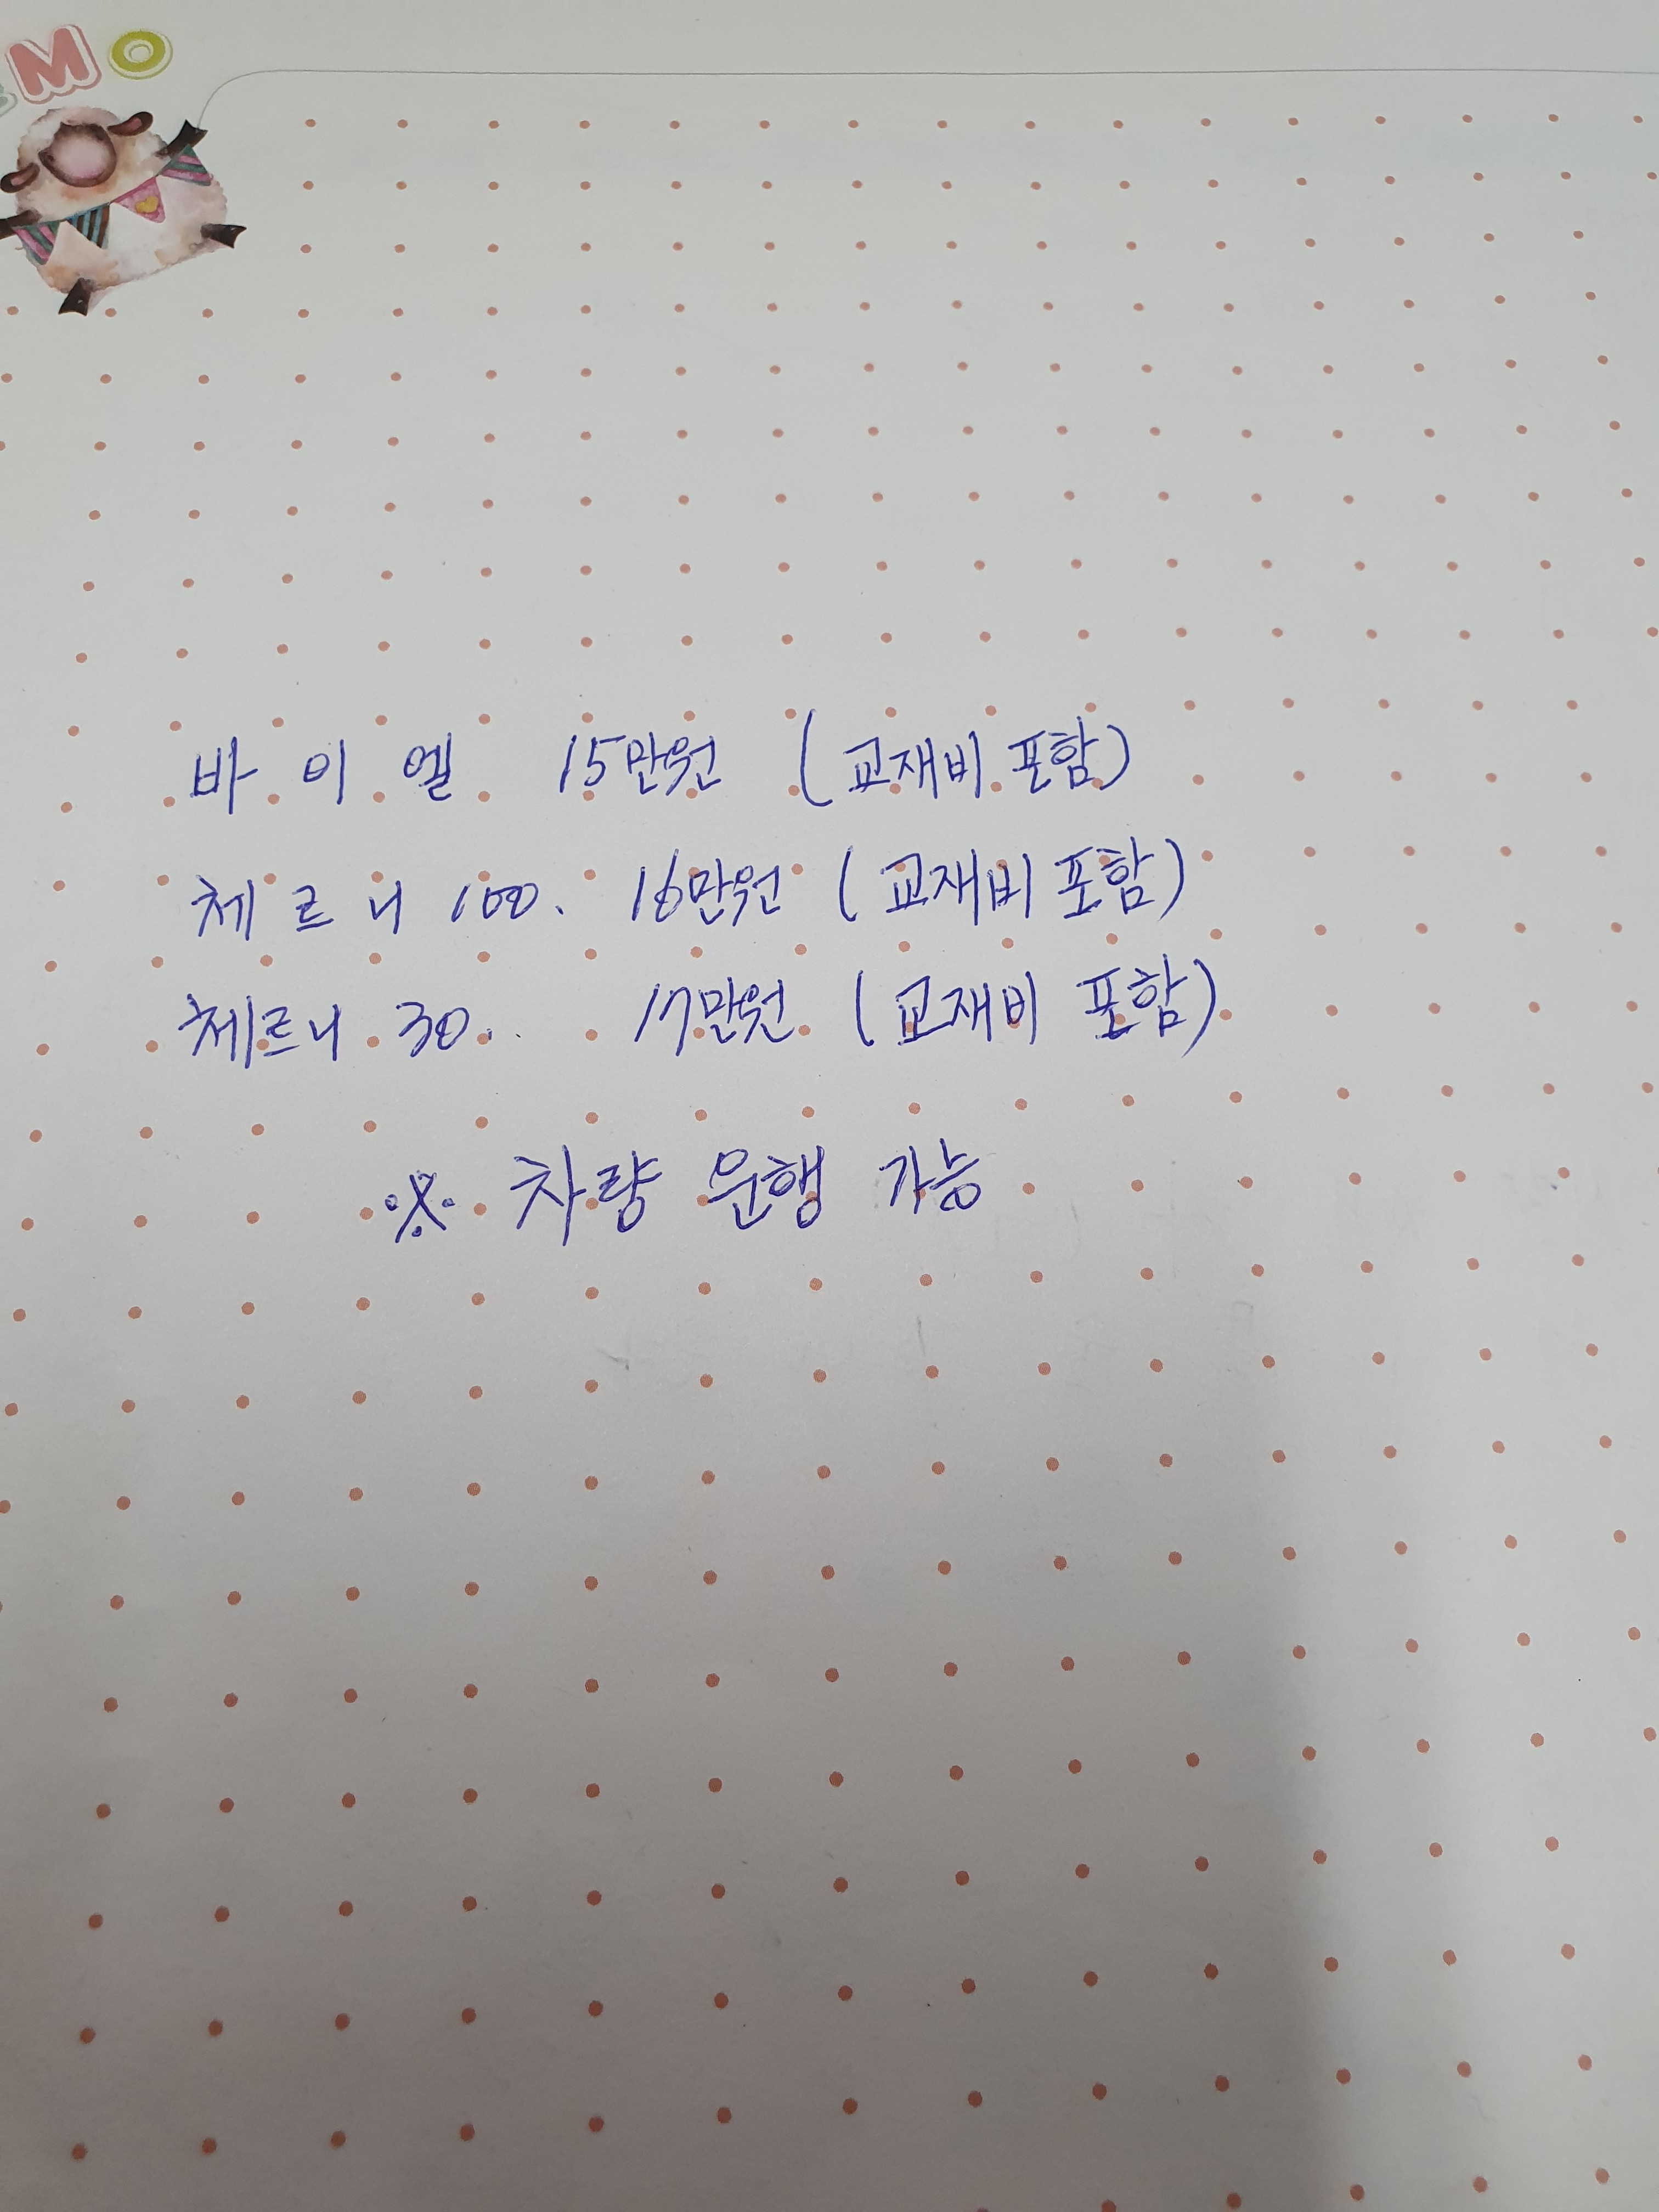 MO
바이엘 15만원 (교재비 포함)
체르니 100. 16만원 (교재비 포함)
체르니 30.. 17만원 (교재비 포함)
※ 차량 운행 가능